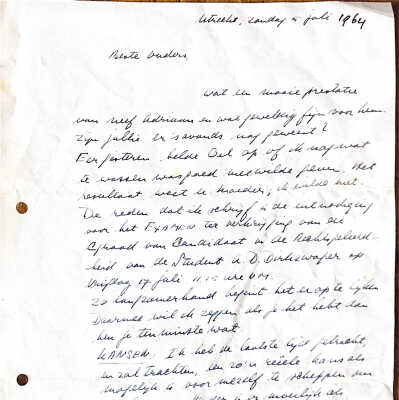 Utrecht, zondag 5 juli 1964
Beste Ouders,
wat een mooie prestatie
van neef Adriaan en wat geweldig fijn voor hem.
Zijn jullie er 's avonds nog geweest?
Eergisteren belde Oel op of ik nog wat
te wassen wasgoed mee wilde geven. Het
resultaat weet U moeder, ik wilde niet.
De reden dat ik schrijf is de uitnodiging
voor het EXAMEN ter verkrijging van de
Graad van Candidaat in de Rechtsgeleerd-
heid van de Student A.D. Dirkzwager op
Vrijdag 17 juli 11.15 ure v.m.
Zo langzamerhand begint het er op te lijken
Daarmee wil ik zeggen als je het hebt dan
heb je tenminste wat
KANSEN: Ik heb de laatste tijd getracht,
en zal trachten, een zo'n reële kans als
mogelijk is voor mezelf te scheppen om
moeilijk als